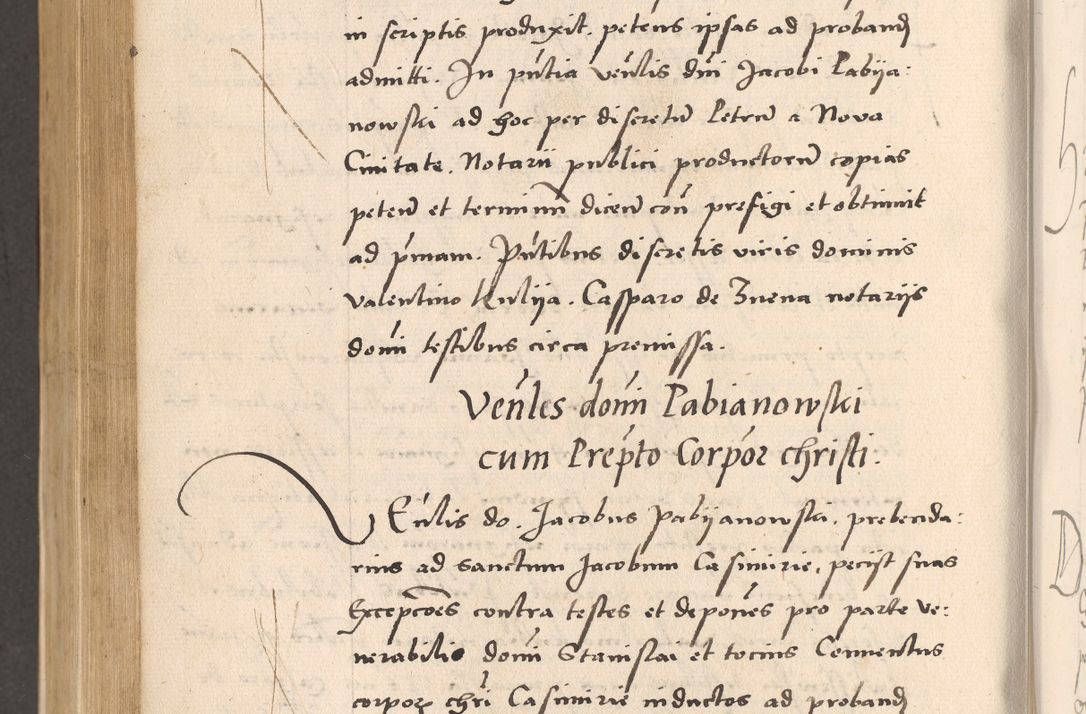 in scriptis produxit. petens ipsas ad proband
admitti. In pntia venlis dni Jacobi Pabija:
nowski ad hoc per discretu Petru a Nova
Civitate. Notarii publici productoru copias
peteñ et terminu diceñ coñ prefigi et obtinuit
ad pmam. Pntibus discretis viris dominis
Valentino Kulija. Casparo de Znena notariis
domi testibus circa premissa.
Venles domi Pabianowski
cum Prepto Corpor christi.
VEnlis do. Jacobus Pabijanowski. prebenda:
rius ad sanctum Jacobum Casimirie, pecijt suas
Excepcoes contra testes et depones pro parte ve:
nerabilis domi Stanislai et tocius Conventus
corpor chri Casimirie inductos ad proband